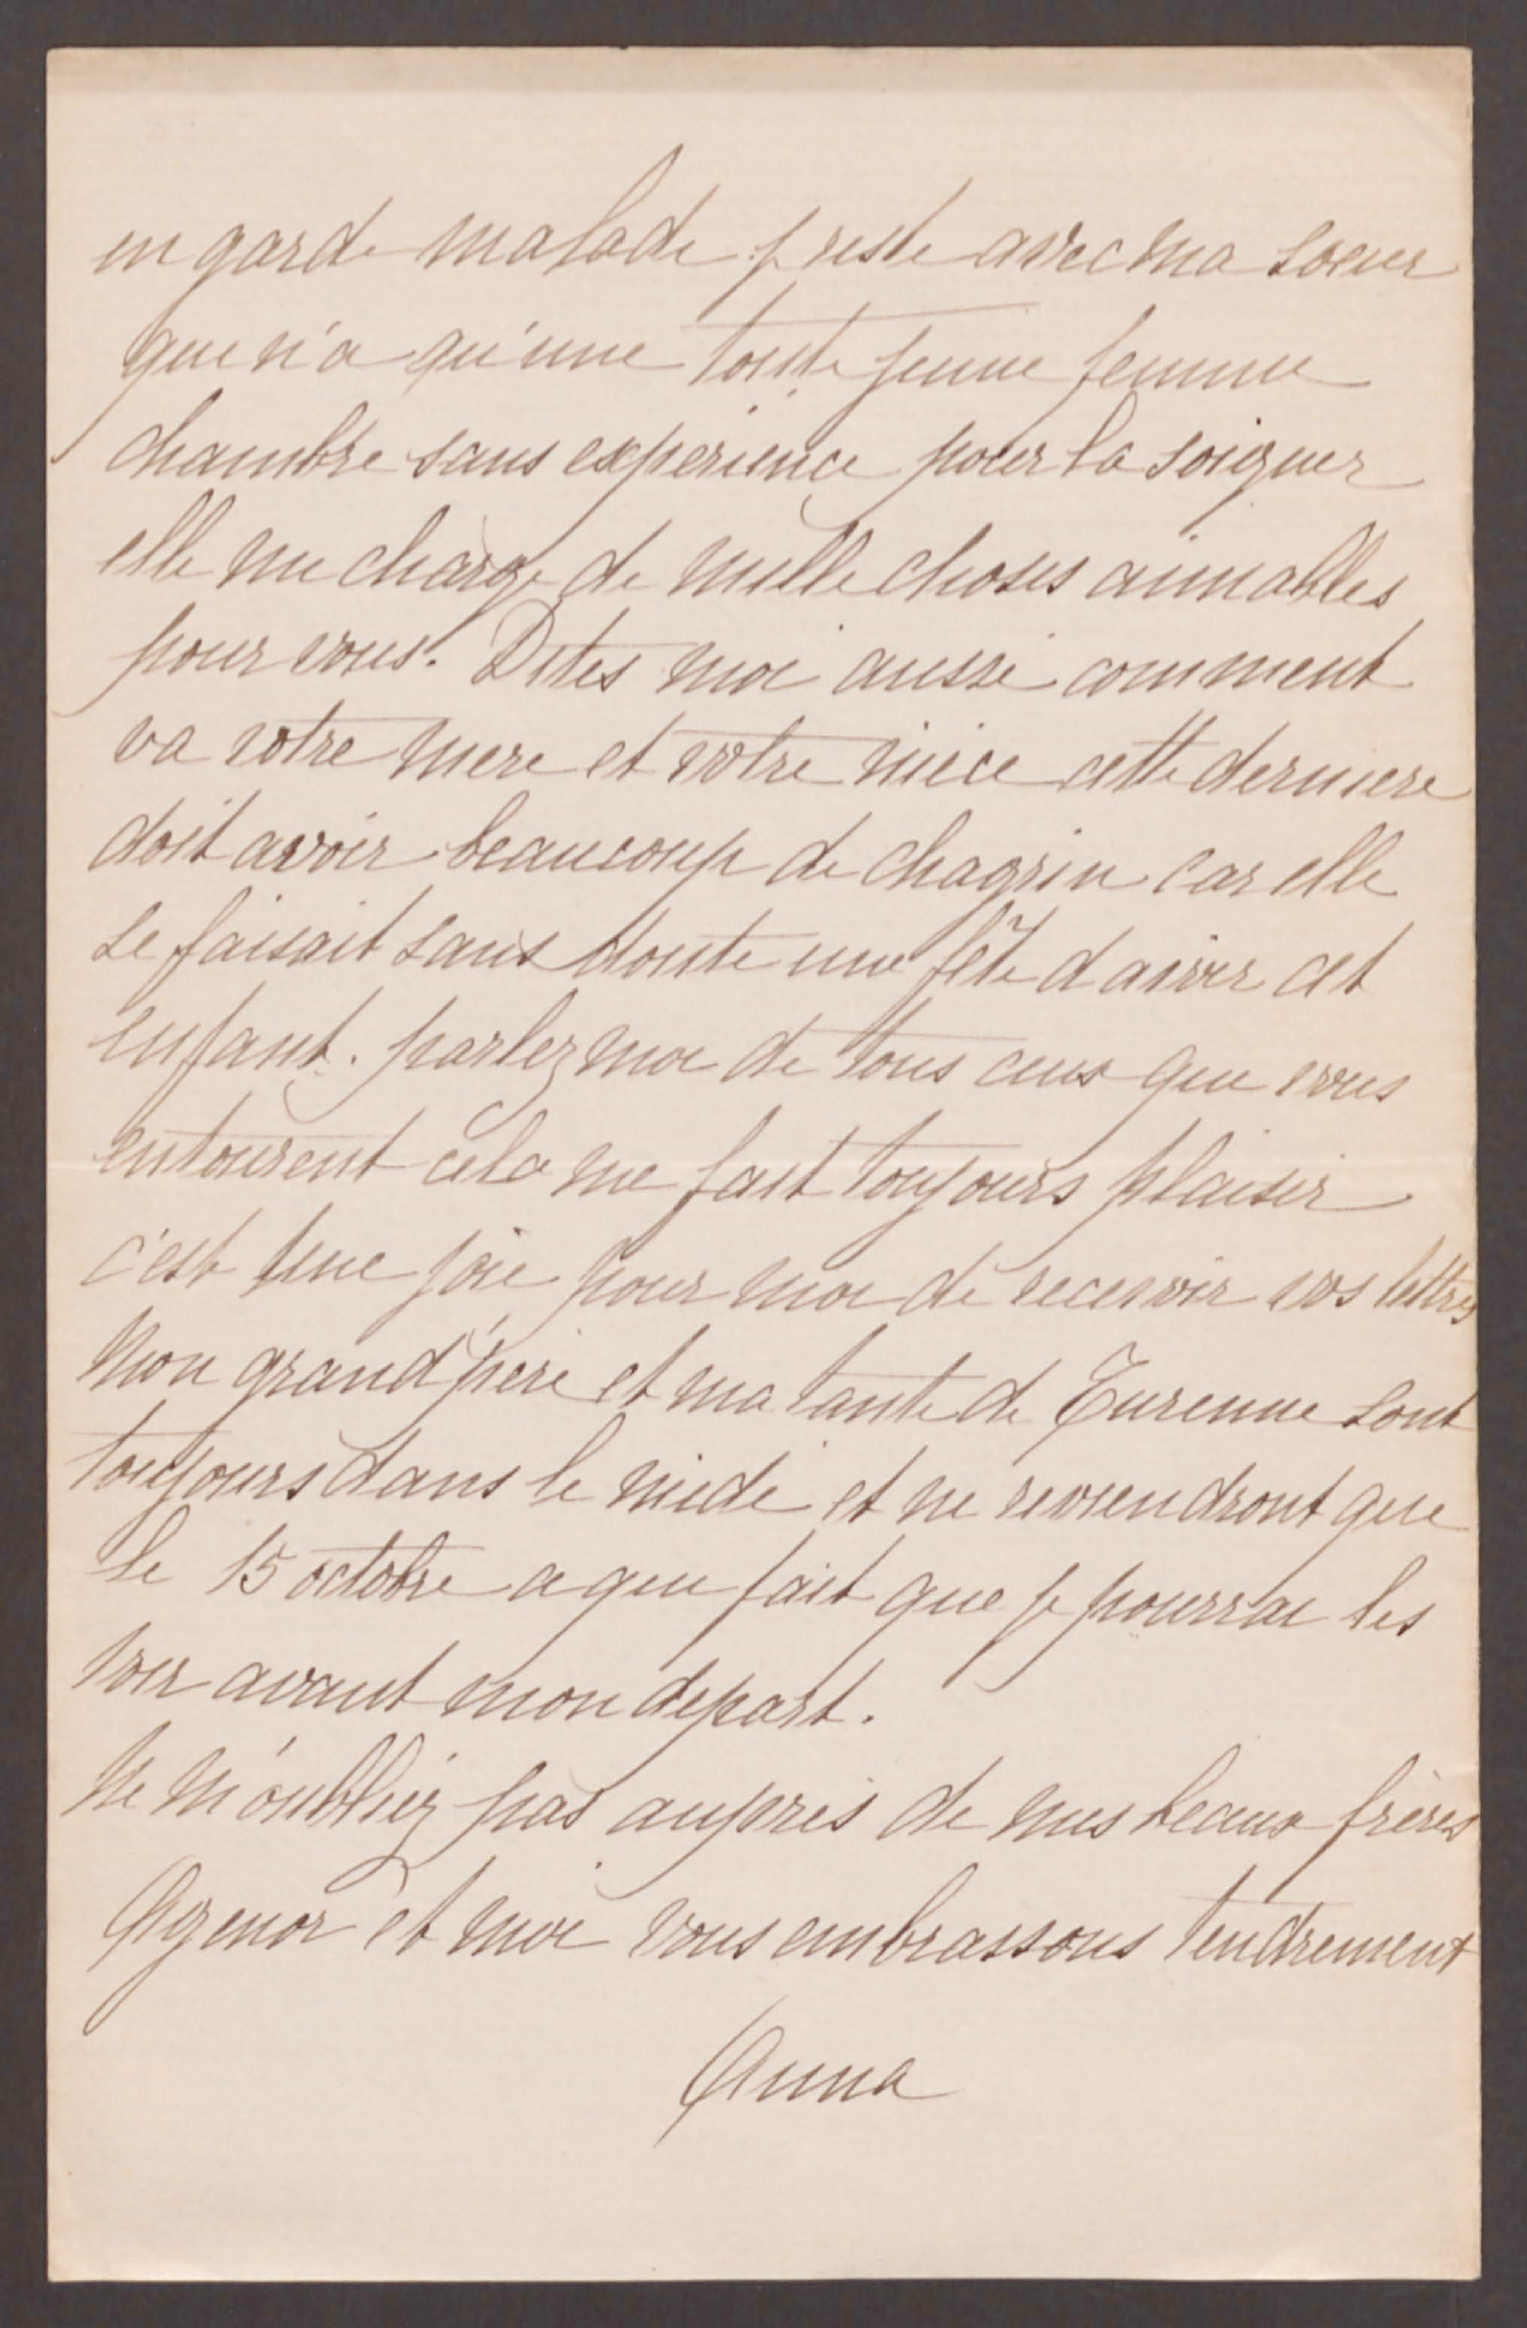 en garde malade je reste avec ma sœur
qui n'a qu'une toute jeune femme
chambre sans experience pour la soigner
elle me charge de mille choses aimables
pour vous. Dites moi aussi comment
va votre mere et votre nièce cette derniere
doit avoir beaucoup de chagrin car elle
se faisait sans doute une fête d'avoir cet
enfant. parlez moi de tous ceux qui vous
entourent cela me fait toujours plaisir
c'est une joie pour moi de recevoir vos lettres
Mon grand'père et ma tante de Turenne sont
toujours dans le midi et ne reviendront que
le 15 octobre ce qui fait que je pourrai les
voir avant mon depart.
Ne m'oubliez pas auprès de mes beaux frères
Agenor et moi vous embrassons tendrement
Anna